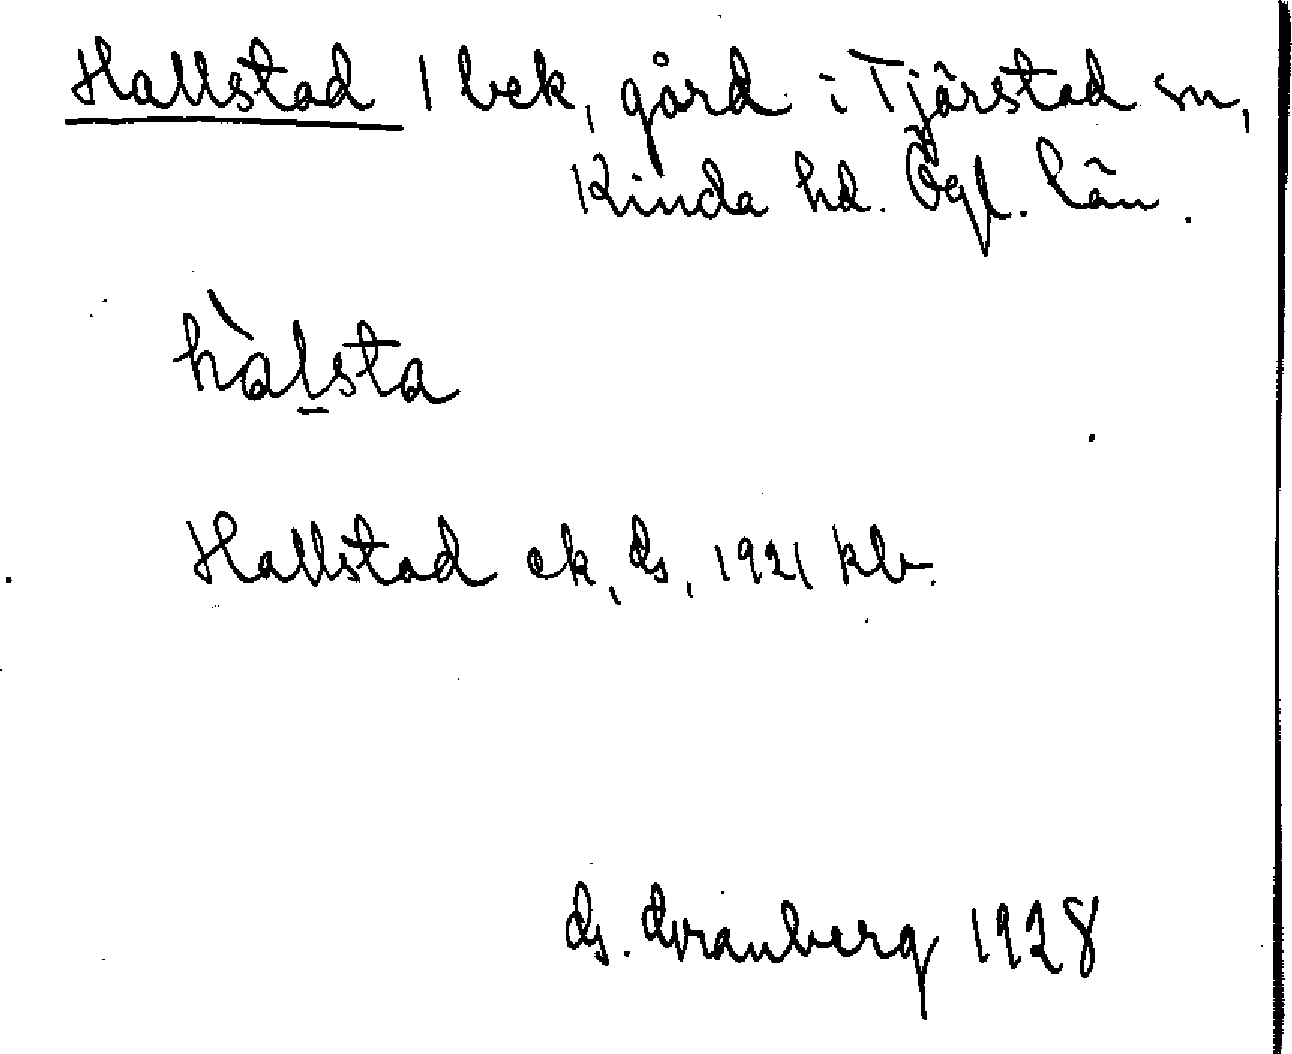 Hallstad 1 bek, gård i Tjärstad sn,
Kinda hd. Ögl. län.
hàlsta
Hallstad ek, ds, 1921 klb.
1928